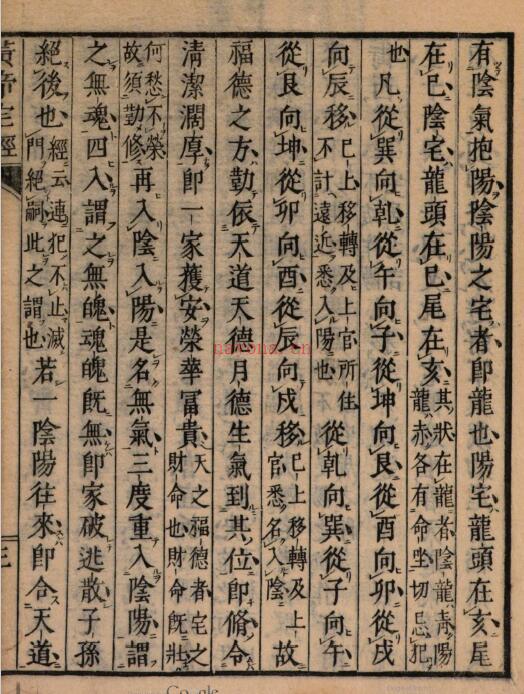 有陰氣抱陽陰陽之宅者即龍也陽宅龍頭在亥尾
在巳陰宅龍頭在巳尾在亥其狀在龍者陰龍青陽龍赤各有命坐切忌犯
也凡從巽向乾從午向子從坤向艮從酉向卯從戌
向辰移已上移轉及上官所住不計遠近悉入陽也從乾向巽從子向午
從艮向坤從卯向酉從辰向戌移已上移轉及上官悉名入陰故
福德之方勤依天道天德月德生氣到其位即修令
清潔濶厚即一家獲安榮華富貴天之福德者宅之財命也財命既壯
何愁不榮故須勤修再入陰入陽是名無氣三度重入陰陽謂
之無魂四入謂之無魄魂魄既無即家破逃散子孫
絕後也經云連犯不止滅門絕嗣此之謂也若一陰陽往來即合天道
黃帝宅經
三
naroma.cn
Google